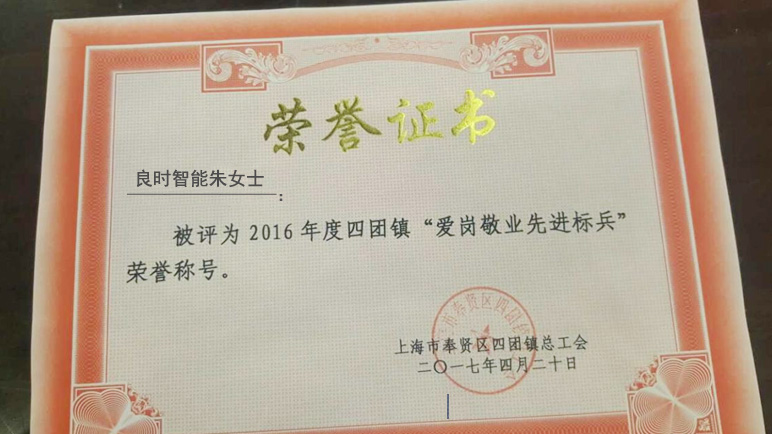 荣誉证书
良时智能朱女士：
被评为2016年度四团镇“爱岗敬业先进标兵”
荣誉称号。
上海市奉贤区四团镇总工会
二〇一七年四月二十日